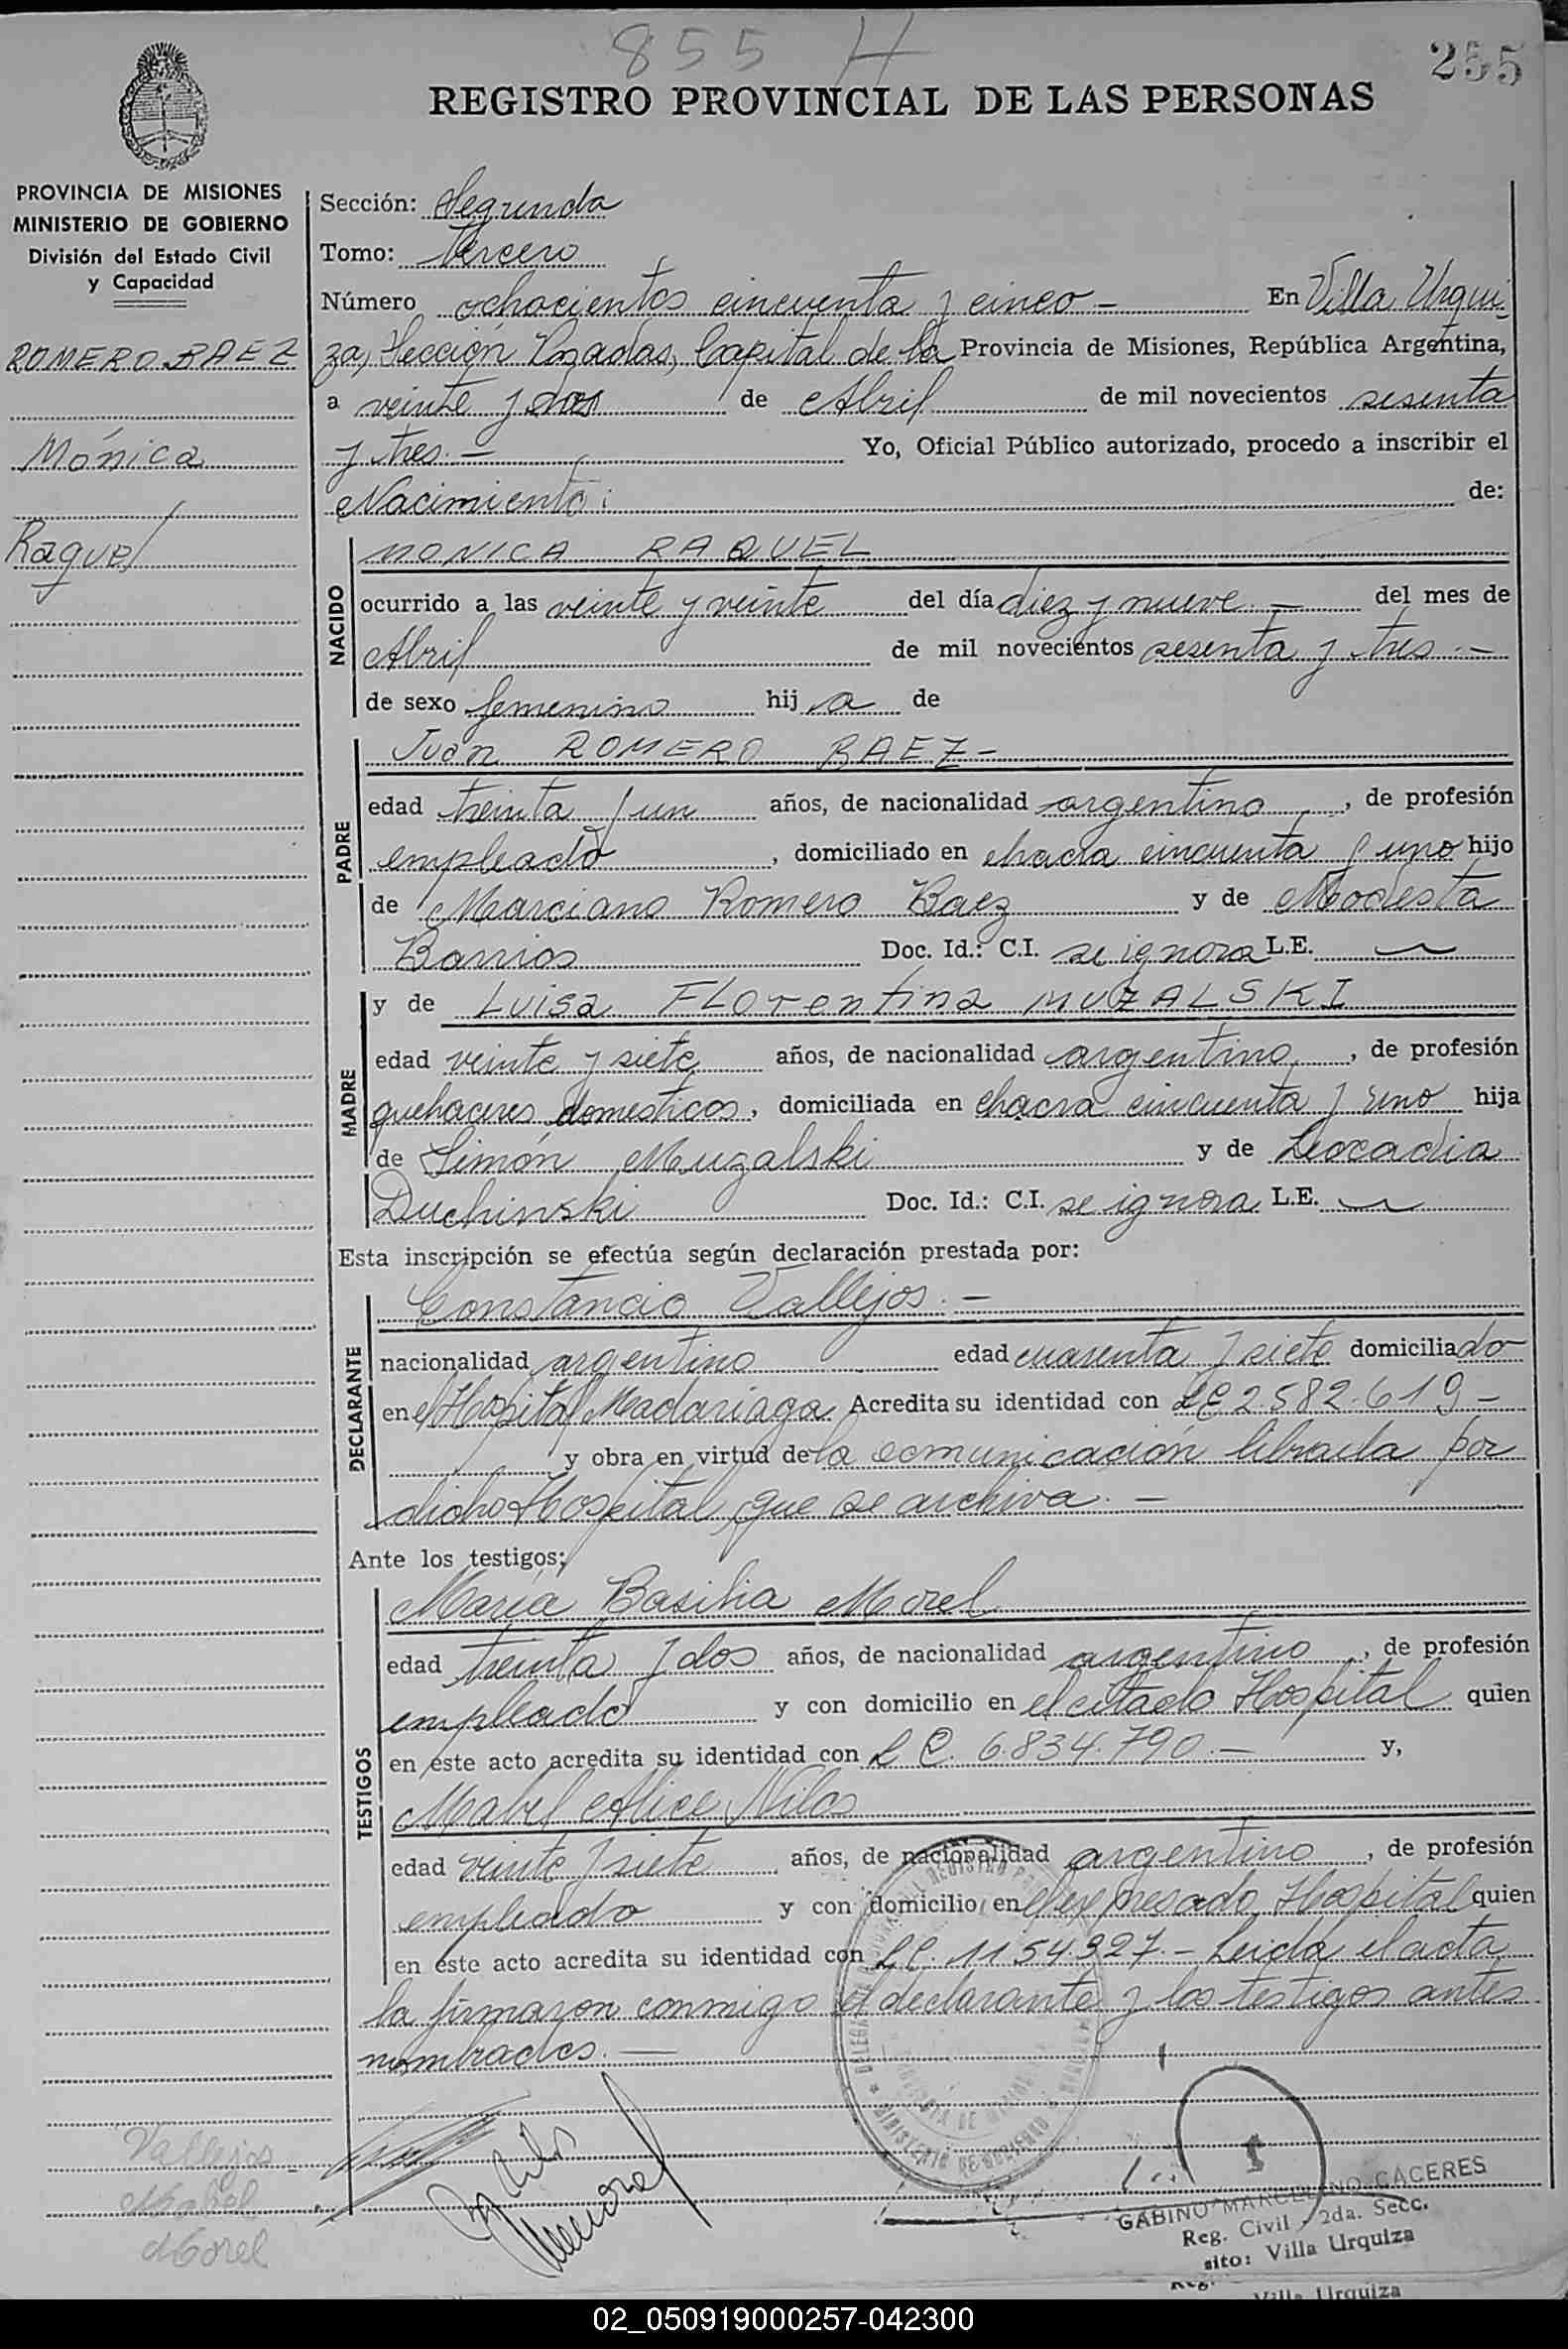 855 H
255
REGISTRO PROVINCIAL DE LAS PERSONAS
PROVINCIA DE MISIONES
MINISTERIO DE GOBIERNO
División del Estado Civil
y Capacidad
ROMERO BAEZ
Mónica
Raquel
Sección: Segunda
Tomo: Tercero
Número ochocientos cincuenta y cinco - En Villa Urqui-
za, Sección Posadas, Capital de la Provincia de Misiones, República Argentina,
a veinte y dos de Abril de mil novecientos sesenta
y tres.- Yo, Oficial Público autorizado, procedo a inscribir el
Nacimiento: de:
NACIDO
MONICA RAQUEL
ocurrido a las veinte y veinte del día diez y nueve.- del mes de
Abril de mil novecientos sesenta y tres.-
de sexo femenino hij a de
PADRE
Juan ROMERO BAEZ-
edad treinta y un años, de nacionalidad argentino, de profesión
empleado, domiciliado en chacra cincuenta y uno hijo
de Marciano Romero Baez y de Modesta
Barrios Doc. Id.: C.I. se ignora L.E. —
MADRE
y de Luisa FLorentina MUZALSKI
edad veinte y siete años, de nacionalidad argentino, de profesión
quehaceres domesticos, domiciliada en chacra cincuenta y uno hija
de Simón Muzalski y de Leocadia
Duchinski Doc. Id.: C.I. se ignora L.E. —
Esta inscripción se efectúa según declaración prestada por:
DECLARANTE
Constancio Vallejos.-
nacionalidad argentino edad cuarenta y siete domiciliado
en el Hospital Madariaga Acredita su identidad con LE 2.582.619-
y obra en virtud de la comunicación librada por
dicho Hospital, que se archiva.-
Ante los testigos;
TESTIGOS
María Basilia Morel
edad treinta y dos años, de nacionalidad argentino, de profesión
empleado y con domicilio en el citado Hospital quien
en este acto acredita su identidad con L C. 6.834.790.- y,
Mabel Alice Nilos
edad veinte y siete años, de nacionalidad argentino, de profesión
empleado y con domicilio en el expresado Hospital quien
en este acto acredita su identidad con LC. 1154.327.- Leida el acta
la firmaron conmigo el declarante y los testigos antes
nombrados.-
Vallejos
Mabel
Morel
MINISTERIO DE GOBIERNO
GABINO MARCELINO CACERES
Reg. Civil 2da. Secc.
sito: Villa Urquiza
Villa Urquiza
02_050919000257-042300